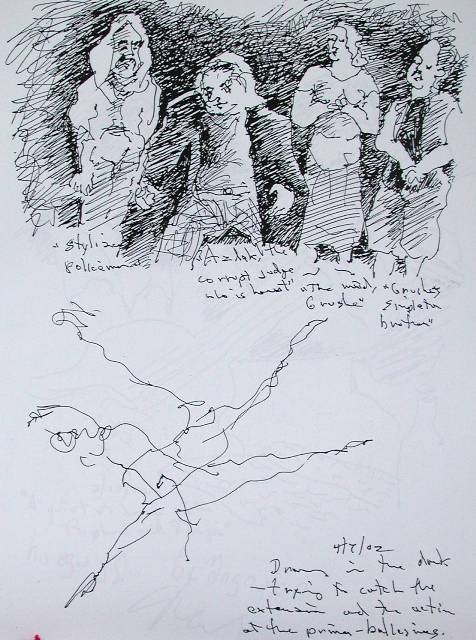 policeman
"Azdak the
corrupt judge
who is honest"
"The maid
Grusha"
"Grusha's
brother"
4/7/02
Drawn in the dark
— trying to catch the
extension and the action
of the prima-ballerina.